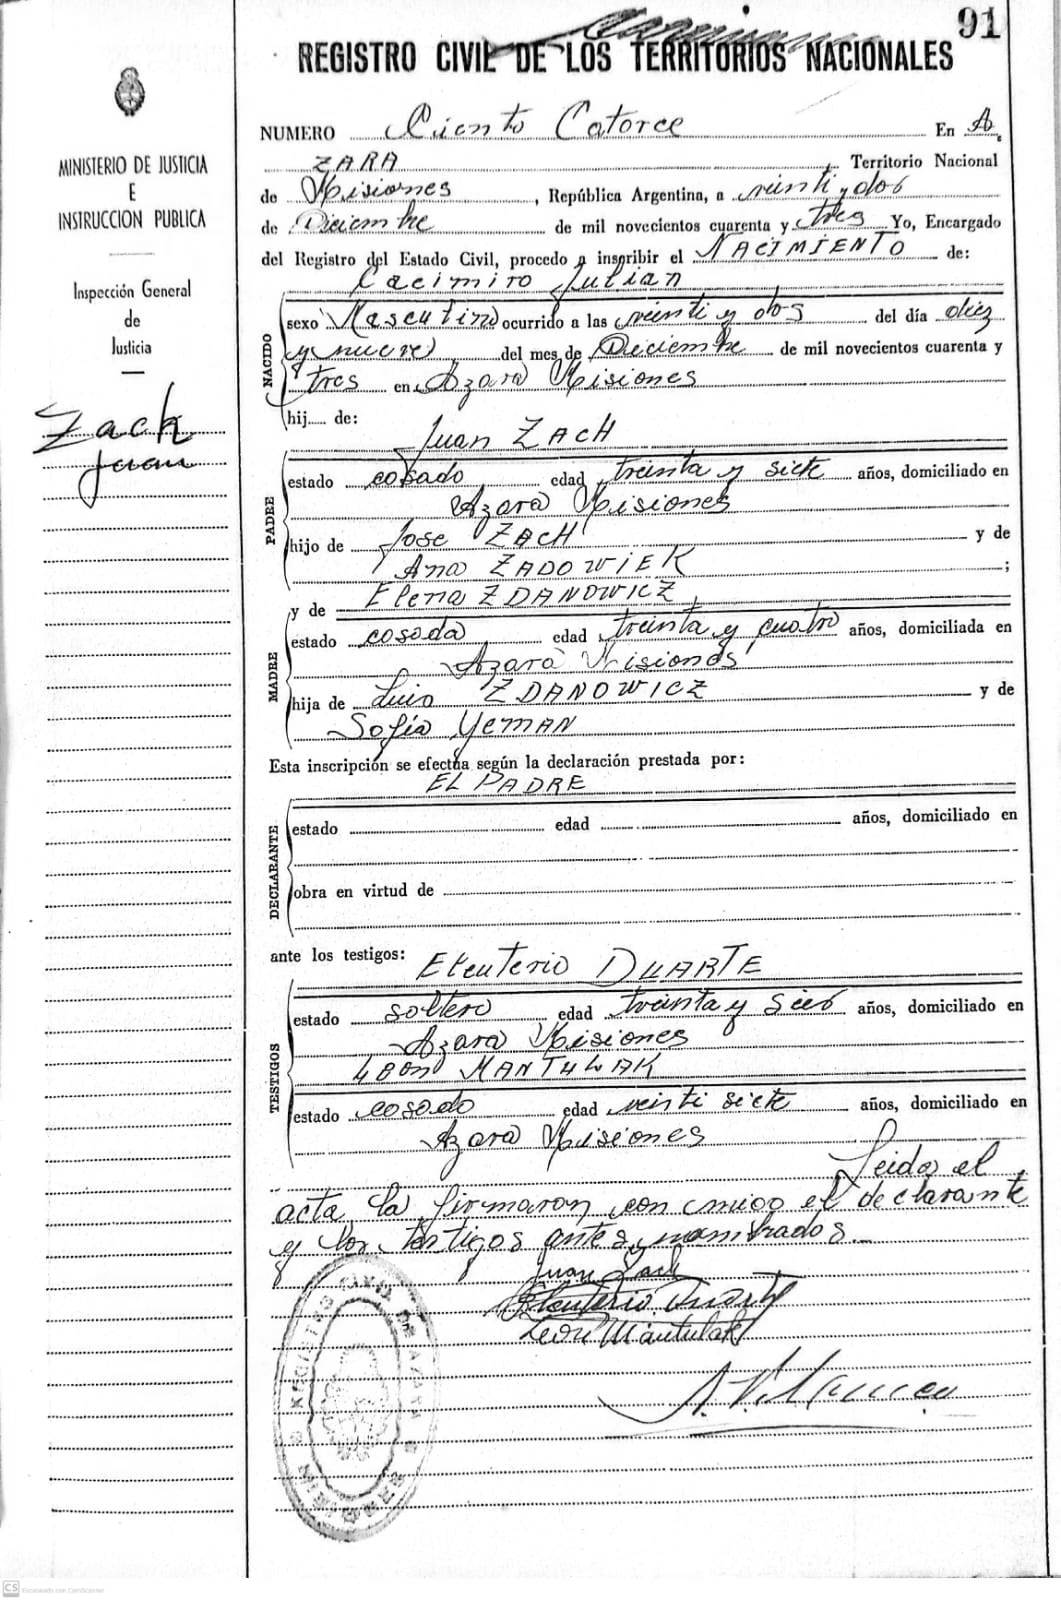 91
REGISTRO CIVIL DE LOS TERRITORIOS NACIONALES
MINISTERIO DE JUSTICIA
E
INSTRUCCION PUBLICA
Inspección General
de
Justicia
Zach
Juan
NUMERO Ciento Catorce En A.
ZARA Territorio Nacional
de Misiones, República Argentina, a veinti y dos
de Diciembre de mil novecientos cuarenta y tres Yo, Encargado
del Registro del Estado Civil, procedo a inscribir el NACIMIENTO de:
Cacimiro Julian
NACIDO
sexo Masculino ocurrido a las veinti y dos del día diez
y nueve del mes de Diciembre de mil novecientos cuarenta y
tres en Azara Misiones
hij..... de:
Juan ZACH
PADRE
estado casado edad treinta y siete años, domiciliado en
Azara Misiones
hijo de Jose ZACH y de
Ana ZADOWIEK ;
y de Elena ZDANOWICZ
MADRE
estado casada edad treinta y cuatro años, domiciliada en
Azara Misiones
hija de Luis ZDANOWICZ y de
Sofia YEMAN
Esta inscripción se efectúa según la declaración prestada por:
EL PADRE
DECLARANTE
estado edad años, domiciliado en
obra en virtud de
ante los testigos: Eleuterio DUARTE
TESTIGOS
estado soltero edad treinta y seis años, domiciliado en
Azara Misiones
MANTULAK
estado casado edad veinti siete años, domiciliado en
Azara Misiones
Leida el
acta la firmaron con migo el declarante
y los testigos antes nombrados
Juan Zach
Eleuterio Duarte
León Mantulak
REGISTRO CIVIL DE AZARA
CS Escaneado con CamScanner